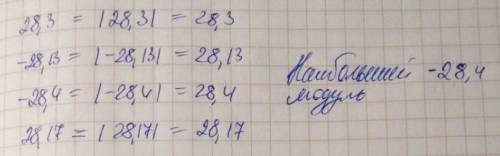 28,3 = |28,3| = 28,3
-28,13 = |-28,13| = 28,13
-28,4 = |-28,4| = 28,4
28,17 = |28,17| = 28,17
Наибольший -28,4
модуль